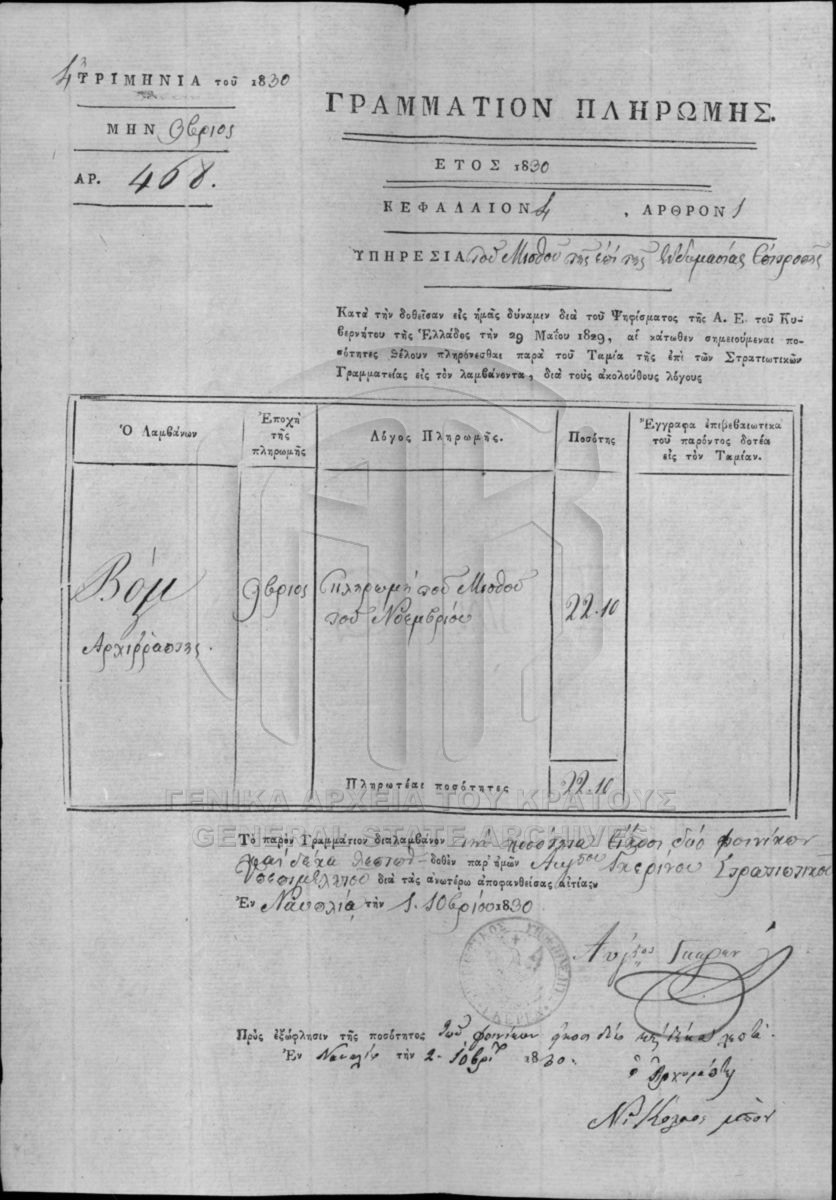 4 ΤΡΙΜΗΝΙΑ τοῦ 1830
ΜΗΝ 9βριος
ΑΡ. 468.
ΓΡΑΜΜΑΤΙΟΝ ΠΛΗΡΩΜΗΣ.
ΕΤΟΣ 1830
ΚΕΦΑΛΑΙΟΝ 4 , ΑΡΘΡΟΝ 1
ΥΠΗΡΕΣΙΑ τοῦ Μισθοῦ τῆς ἐπὶ τῆς Ἐνδυμασίας Ἐπιτροπῆς
Κατὰ τὴν δοθεῖσαν εἰς ἡμᾶς δύναμιν διὰ τοῦ Ψηφίσματος τῆς Α. Ε. τοῦ Κυ-
βερνήτου τῆς Ἑλλάδος τὴν 29 Μαΐου 1829, αἱ κάτωθεν σημειούμεναι πο-
σότητες θέλουν πληρόνεσθαι παρὰ τοῦ Ταμία τῆς ἐπὶ τῶν Στρατιωτικῶν
Γραμματείας εἰς τὸν λαμβάνοντα, διὰ τοὺς ἀκολούθους λόγους
Ὁ Λαμβάνων
Ἐποχὴ
τῆς
πληρωμῆς
Λόγος Πληρωμῆς.
Ποσότης
Ἔγγραφα ἐπιβεβαιωτικὰ
τοῦ παρόντος δοτέα
εἰς τὸν Ταμίαν.
Βόμ
Ἀρχιρράπτης.
9βριος
Πληρωμὴ τοῦ Μισθοῦ
τοῦ Νοεμβρίου
22.10
Πληρωτέαι ποσότητες
22.10
ΓΕΝΙΚΑ ΑΡΧΕΙΑ ΤΟΥ ΚΡΑΤΟΥΣ
GENERAL STATE ARCHIVES
Τὸ παρὸν Γραμμάτιον διαλαμβάνον τὴν ποσότητα εἴκοσι δύο φοινίκων
καὶ δέκα λεπτῶν δοθὲν παρ' ἡμῶν Γκερίνου Στρατιωτικοῦ
διὰ τὰς ἀνωτέρω ἀποφανθείσας αἰτίας
Ἐν Ναυπλίᾳ τὴν 1. 10βρίου 1830
Πρὸς ἐξώφλησιν τῆς ποσότητος τῶν φοινίκων ἤκοσι δύο καὶ δέκα λεπτά.
Ἐν τὴν 2 10βρί 1830.
ὁ
Νικόλαος